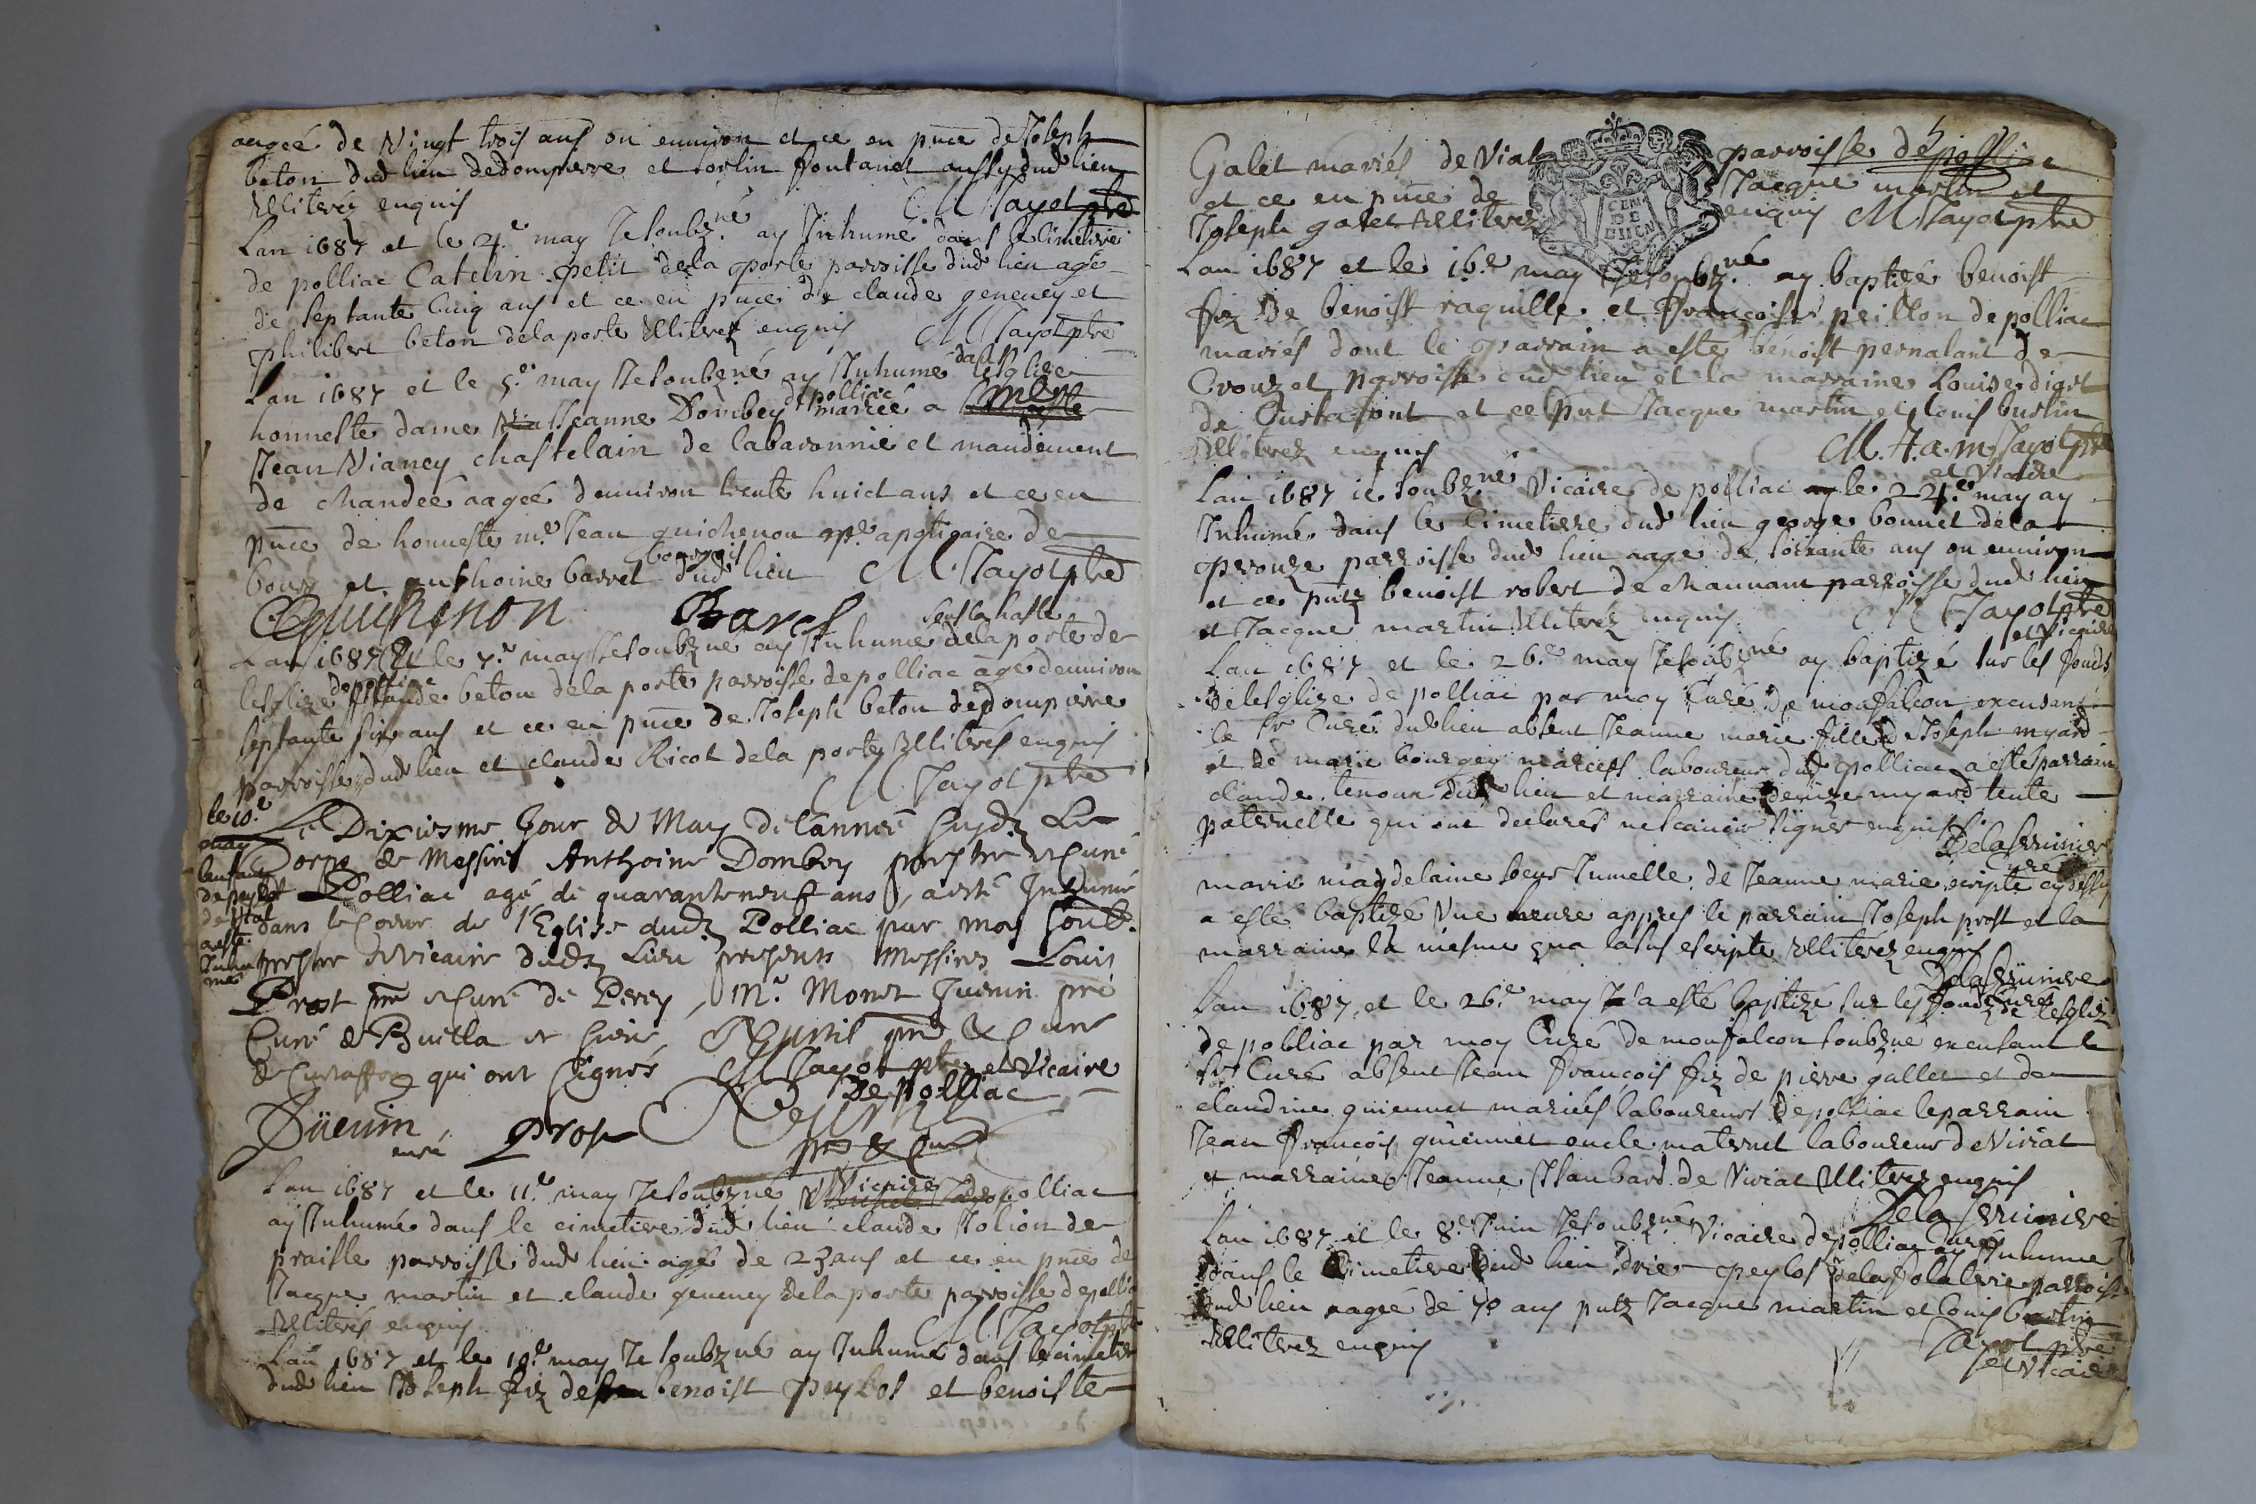 aagée de Vingt trois ans ou environ et ce en pnce de Joseph
beton dud lieu dedompierre et Joslin fontanet aussy dud lieu
Illiterez enquis M Jayot ptre
Lan 1687 et le 4.e may Je soubzné ay Inhumé dans le cimetiere
de polliac Catelin petit dela porte parroisse dud lieu agé
de septante Cinq ans et ce en pnce de claude geneney et
philibert beton dela porte Illiterez enquis M Jayot ptre
Lan 1687 et le 5.e may Je soubzné ay Inhumé dans lesglize
de polliac
honneste dame Jeanne Dombey mariée a mre
Jean Vianey chastelain de labaronnie et mandement
de Chandée aagée denviron trente huict ans et ce en
pnce de honneste mr Jean guichenon mre apoticaire de
bourgeois
bourg et anthoine barvet dud lieu M. Jayot ptre
Guichenon Baret
soubs la halle
Lan 1687 Et le 7.e may Je soubzné ay Inhumé dela porte de
de polliac
lesglize claude beton dela porte parroisse de polliac agé denviron
septante six ans et ce en pnce de Joseph beton dedompierre
parroisse dud lieu et claude Ricot dela porte Illiterés enquis
M Jayot ptre
le 10.e
may
lenfan
de peylot
de Viat
a esté
Inhu
mé
Le Dixiesme Jour de May de lannée susdz Le
Corps de Messire Anthoine Dombey prestre et Curé
Polliac agé de quarante neuf ans, a esté Inhumé
dans le Coeur de l'Eglise dudz Polliac par moy soub.
prestre et vicaire dudz Lieu presents Messires Louis
Prost pre et Curé de Perey, Mr. Monet Guenin pre
Curé de Buella et Curé, pre & Curé
de Curtaffon qui ont signés M Jayot ptre et Vicaire
De polliac
Güenin curé Prost pre & Curé
Lan 1687 et le 11.e may Je soubzné Vicaire polliac
ay Inhumé dans le cimetiere dud lieu claude Jolion de
praisle parroisse dud lieu agé de 23 ans et ce en pnce de
Jacque martin et claude geneney dela porte parroisse de pollia
Illiterés enquis M Jayot ptre
Lan 1687 et le 10.e may Je soubzné ay Inhumé dans le cimetie
dud lieu Joseph fiz de benoist peylot et benoiste
Galet mariés de Viat parroisse de polliac
et ce en pnce de Jacque martin et
Joseph galet Illiterez enquis M Jayot ptre
Lan 1687 et le 16.e may Je soubzné ay baptizé benoist
fiz De benoist raquille et Françoise peillon de polliac
mariés dont le parrain a esté benoist pernalant de
Crouzet parroisse dud lieu et la marraine Louise diget
de Curtafont et ce pnt Jacque martin et Louis burtin
Illiterez enquis M. Jayot ptre
et Vicaire
Lan 1687 ie soubzné Vicaire de polliac le 24.e may ay
Inhumé dans le Cimetiere dud lieu george bonnet dela
perouze parroisse dud lieu aagé de soixante ans ou environ
et ce pntz benoist robert de Channant parroisse dud lieu
et Jacque martin Illiterez enquis M Jayot ptre
et Vicaire
Lan 1687 et le 26.e may Je soubzné ay baptizé sur les fonds
De lesglize de polliac par moy Curé de monfalcon excusant
le Sr Curé dud lieu absent Jeanne marie fille de Joseph myard
et de marie bourgey mariess laboureur dud polliac a esté parrain
claude tenour dud lieu et marraine denize myard tente
paternelle qui ont declarés ne scavoir signer enquis
Delasruiniere
Curé
marie magdelaine seur Jumelle de Jeanne marie escripte cy dessus
a esté baptizé Une heure appres le parrain Joseph prost et la
marraine la mesme qua lasus escripte Illiterez enquis
Delasruiniere
Curé
Lan 1687 et le 26.e may a esté baptizé sur les fonds de lesgliz
de polliac par moy Curé de monfalcon soubzné excusant le
Sr Curé absent Jean François fiz de pierre gallet et de
claudine quiennet mariés laboureurs de polliac le parrain
Jean François quiennet oncle maternel laboureur de Viriat
et marraine Jeanne Chaubard de Viriat Illiterez enquis
Dela sruiniere
Curé
Lan 1687 et le 8.e Juin Je soubzné Vicaire de polliac ay Inhumé
dans le Cimetiere dud lieu peylot dela parroisse
dud lieu aagée de 70 ans pntz Jacque martin et Louis burtin
Illiterez enquis Jayot ptre
et Vicaire